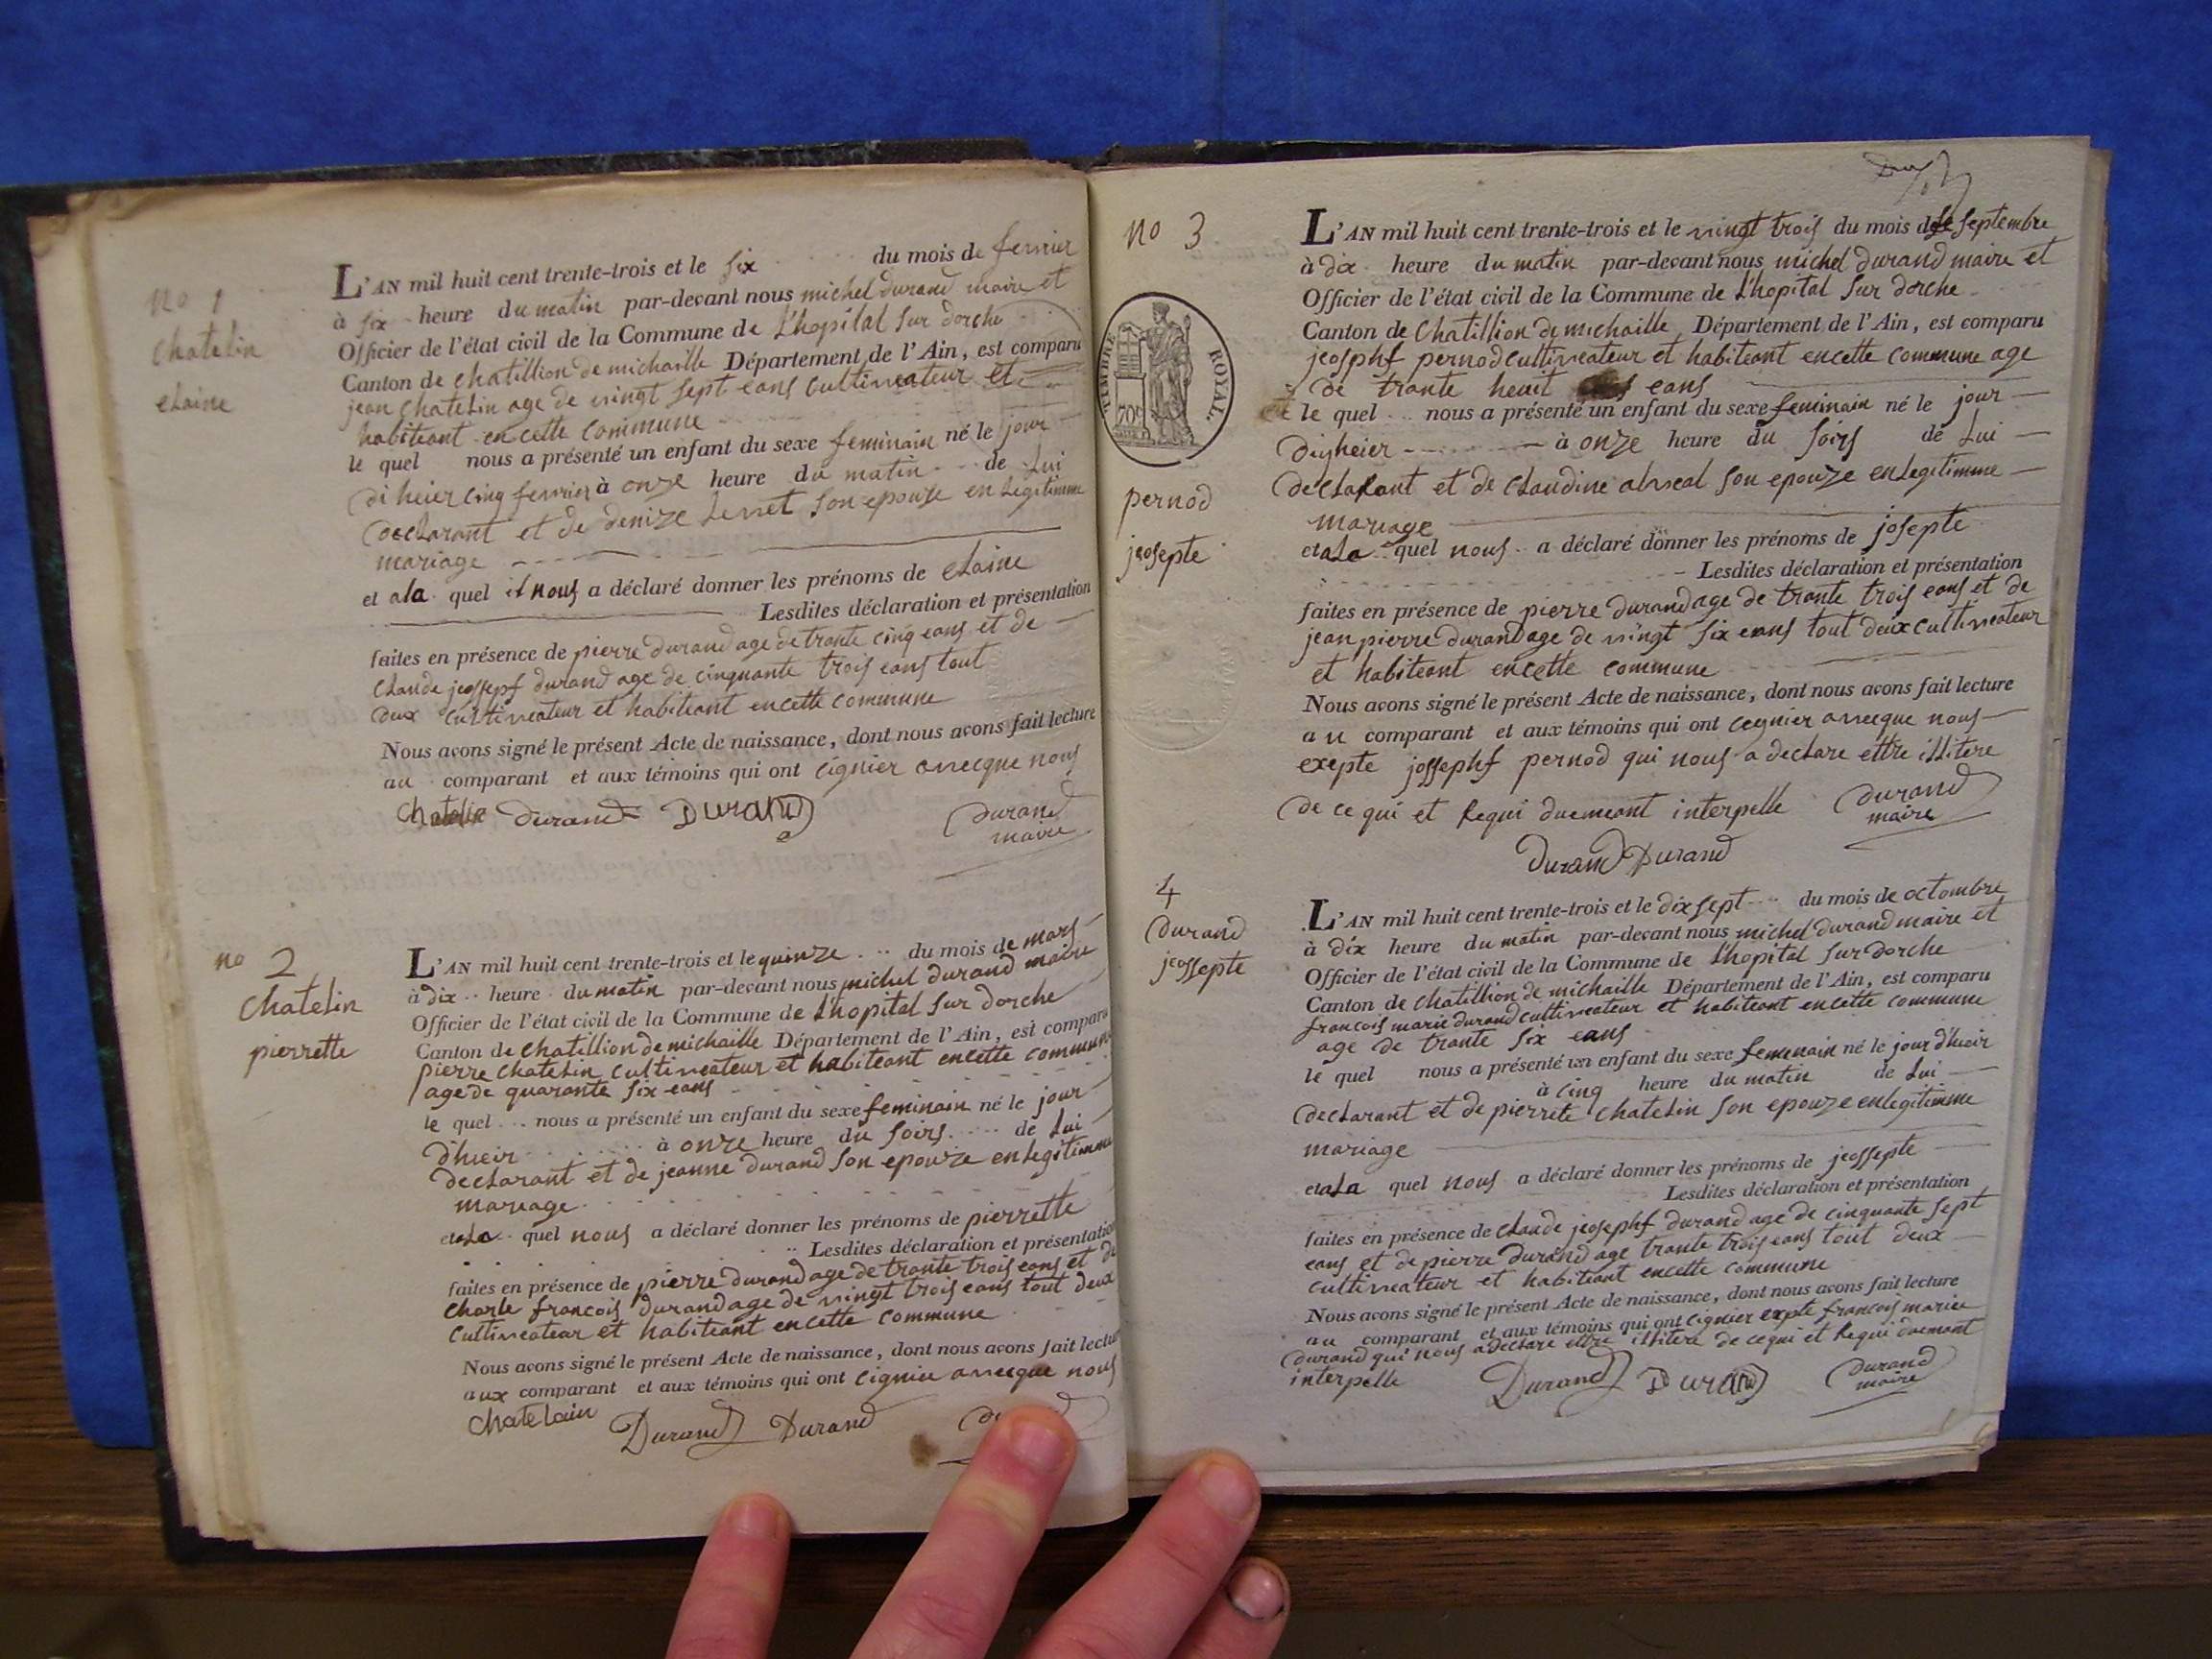 no 1
chatelin
elaine
L'AN mil huit cent trente-trois et le six du mois de fevrier
à six heure du matin par-devant nous michel durand maire et
Officier de l'état civil de la Commune de L'hopital sur dorche
Canton de chatillion de michaille Département de l'Ain, est comparu
jean chatelin age de vingt sept eans cultiveateur et
habiteant en cette commune
le quel nous a présenté un enfant du sexe feminain né le jour
di heier cinq fevrier à onze heure du matin de lui
declarant et de denize levret son epouze en legitimme
mariage
et a la quel il nous a déclaré donner les prénoms de elaine
Lesdites déclaration et présentation
faites en présence de pierre durand age de trante cinq eans et de
claude jeossepf durand age de cinquante trois eans tout
deux cultiveateur et habiteant en cette commune
Nous avons signé le présent Acte de naissance, dont nous avons fait lecture
au comparant et aux témoins qui ont cignier avecque nous
Chatelin durand DURAND durand
maire
no 2
Chatelin
pierrette
L'AN mil huit cent trente-trois et le quinze du mois de mars
à dix heure du matin par-devant nous michel durand maire
Officier de l'état civil de la Commune de L'hopital sur dorche
Canton de chatillion de michaille Département de l'Ain, est comparu
pierre chatelin cultiveateur et habiteant en cette commune
age de quarante six eans
le quel nous a présenté un enfant du sexe feminain né le jour
d'hieir à onze heure du soirs de lui
declarant et de jeanne durand son epouze en legitimme
mareage
et a la quel nous a déclaré donner les prénoms de pierrette
Lesdites déclaration et présentation
faites en présence de pierre durand age de trante trois eans et de
charle francois durand age de vingt trois eans tout deux
cultiveateur et habiteant en cette commune
Nous avons signé le présent Acte de naissance, dont nous avons fait lecture
aux comparant et aux témoins qui ont cignier avecque nous
Chatelain Durand Durand
no 3
TIMBRE ROYAL.
70c
pernod
jeosepte
L'AN mil huit cent trente-trois et le vingt trois du mois de septembre
à dix heure du matin par-devant nous michel durand maire et
Officier de l'état civil de la Commune de L'hopital sur dorche
Canton de chatillion de michaille Département de l'Ain, est comparu
jeosphf pernod cultiveateur et habiteant en cette commune age
de trante heuit eans
le quel nous a présenté un enfant du sexe feminain né le jour
digheier à onze heure du soirs de lui
declarant et de claudine alvreal son epouze en legitimme
mariage
et a la quel nous a déclaré donner les prénoms de josepte
Lesdites déclaration et présentation
faites en présence de pierre durand age de trante trois eans et de
jean pierre durand age de vingt six eans tout deux cultiveateur
et habiteant en cette commune
Nous avons signé le présent Acte de naissance, dont nous avons fait lecture
au comparant et aux témoins qui ont cegnier avecque nous
exepte jossephf pernod qui nous a declare ettre illitere
de ce qui et Requi duemeant interpelle durand
maire
durand Durand
4
durand
jeossepte
L'AN mil huit cent trente-trois et le dix sept du mois de octombre
à dix heure du matin par-devant nous michel durand maire et
Officier de l'état civil de la Commune de L'hopital sur dorche
Canton de chatillion de michaille Département de l'Ain, est comparu
francois marie durand cultiveateur et habiteant en cette commune
age de trante six eans
le quel nous a présenté un enfant du sexe femenain né le jour d'hieir
à cinq heure du matin de lui
declarant et de pierrete chatelin son epouze en legitimme
mariage
et a la quel nous a déclaré donner les prénoms de jeossepte
Lesdites déclaration et présentation
faites en présence de claude jeosephf durand age de cinquante sept
eans et de pierre durand age trante trois eans tout deux
cultiveateur et habiteant en cette commune
Nous avons signé le présent Acte de naissance, dont nous avons fait lecture
au comparant et aux témoins qui ont cignier expte francois mariee
durand qui nous a declare ettre illitere de ce qui et Requi duemant
interpelle Durand DURAND durand
maire